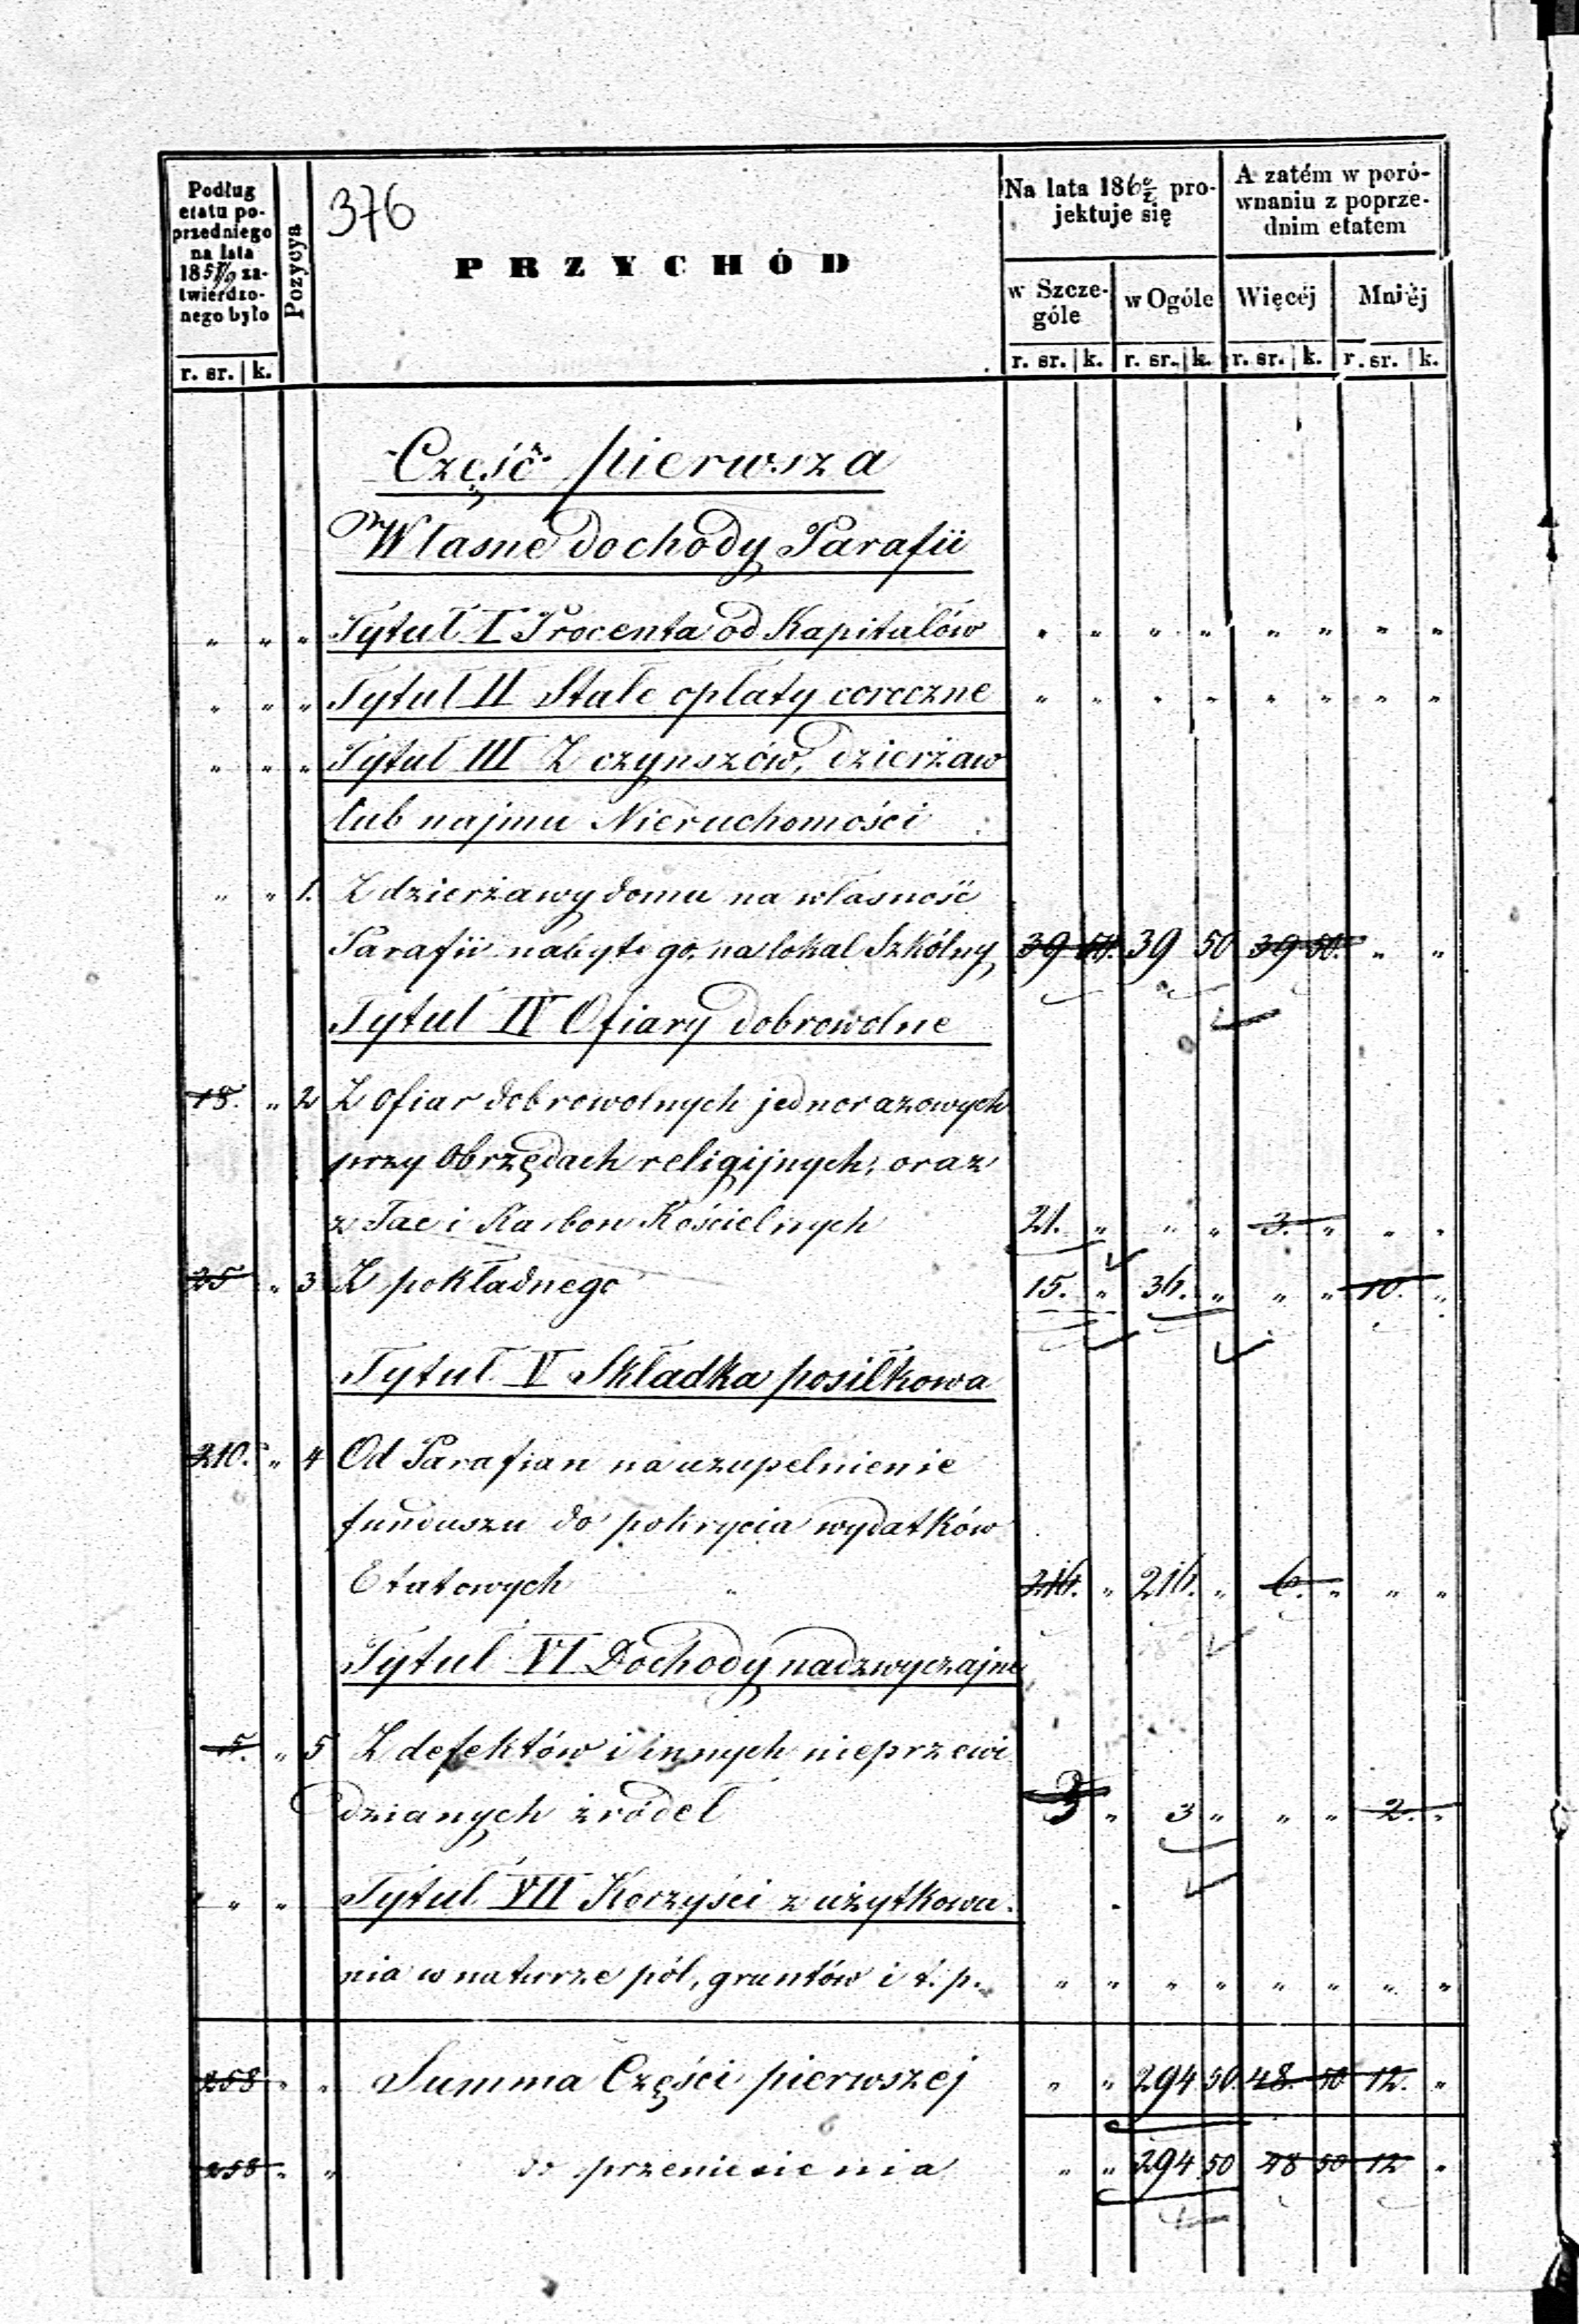 376
Podług etatu po-
przedniego
na lata
185 za-
twierdzo-
nego było
Pozycya
PRZYCHÓD
Na lata 186 0/2 pro-
jektuje się
A zatém w poró-
wnaniu z poprze-
dnim etatem
w Szcze-
góle
w Ogóle
Więcéj
Mniéj
r. sr. k. r. sr. k. r. sr. k. r. sr. k. r. sr. k.
Część pierwsza
Własne dochody Parafii
" " " Tytuł I Procenta od Kapitałów " " " " " " " "
" " " Tytuł II Stałe opłaty coroczne " " " " " " " "
" " " Tytuł III Z czynszów, dzierżaw
lub najmu Nieruchomości
" " 1. Z dzierżawy domu na własność
Parafii nabytego, na lokal Szkólny 39 50. 39 50 39 50. " "
Tytuł IV Ofiary dobrowolne
18. " 2 Z ofiar dobrowolnych jednorazowych
przy Obrzędach religijnych, oraz
z Tac i Karbon Kościelnych 21. " " " 3. " " "
25 " 3 Z pokładnego 15. " 36. " " " 10. "
Tytuł V Składka posiłkowa
210. " 4 Od Parafian na uzupełnienie
funduszu do pokrycia wydatków
Etatowych " 216. " 216. " 6. " " "
Tytuł VI Dochody nadzwyczajne
5. " 5 Z defektów i innych nieprzewi
dzianych źródeł 3 " 3 " " " 2. "
" " Tytuł VII Korzyści z użytkowa
nia w naturze pól, gruntów i t. p. " " " " " " " "
258 " " Summa Części pierwszej " " 294 50. 48. 50 12. "
258 " " do przeniesienia " " 294 50 48 50 12 "